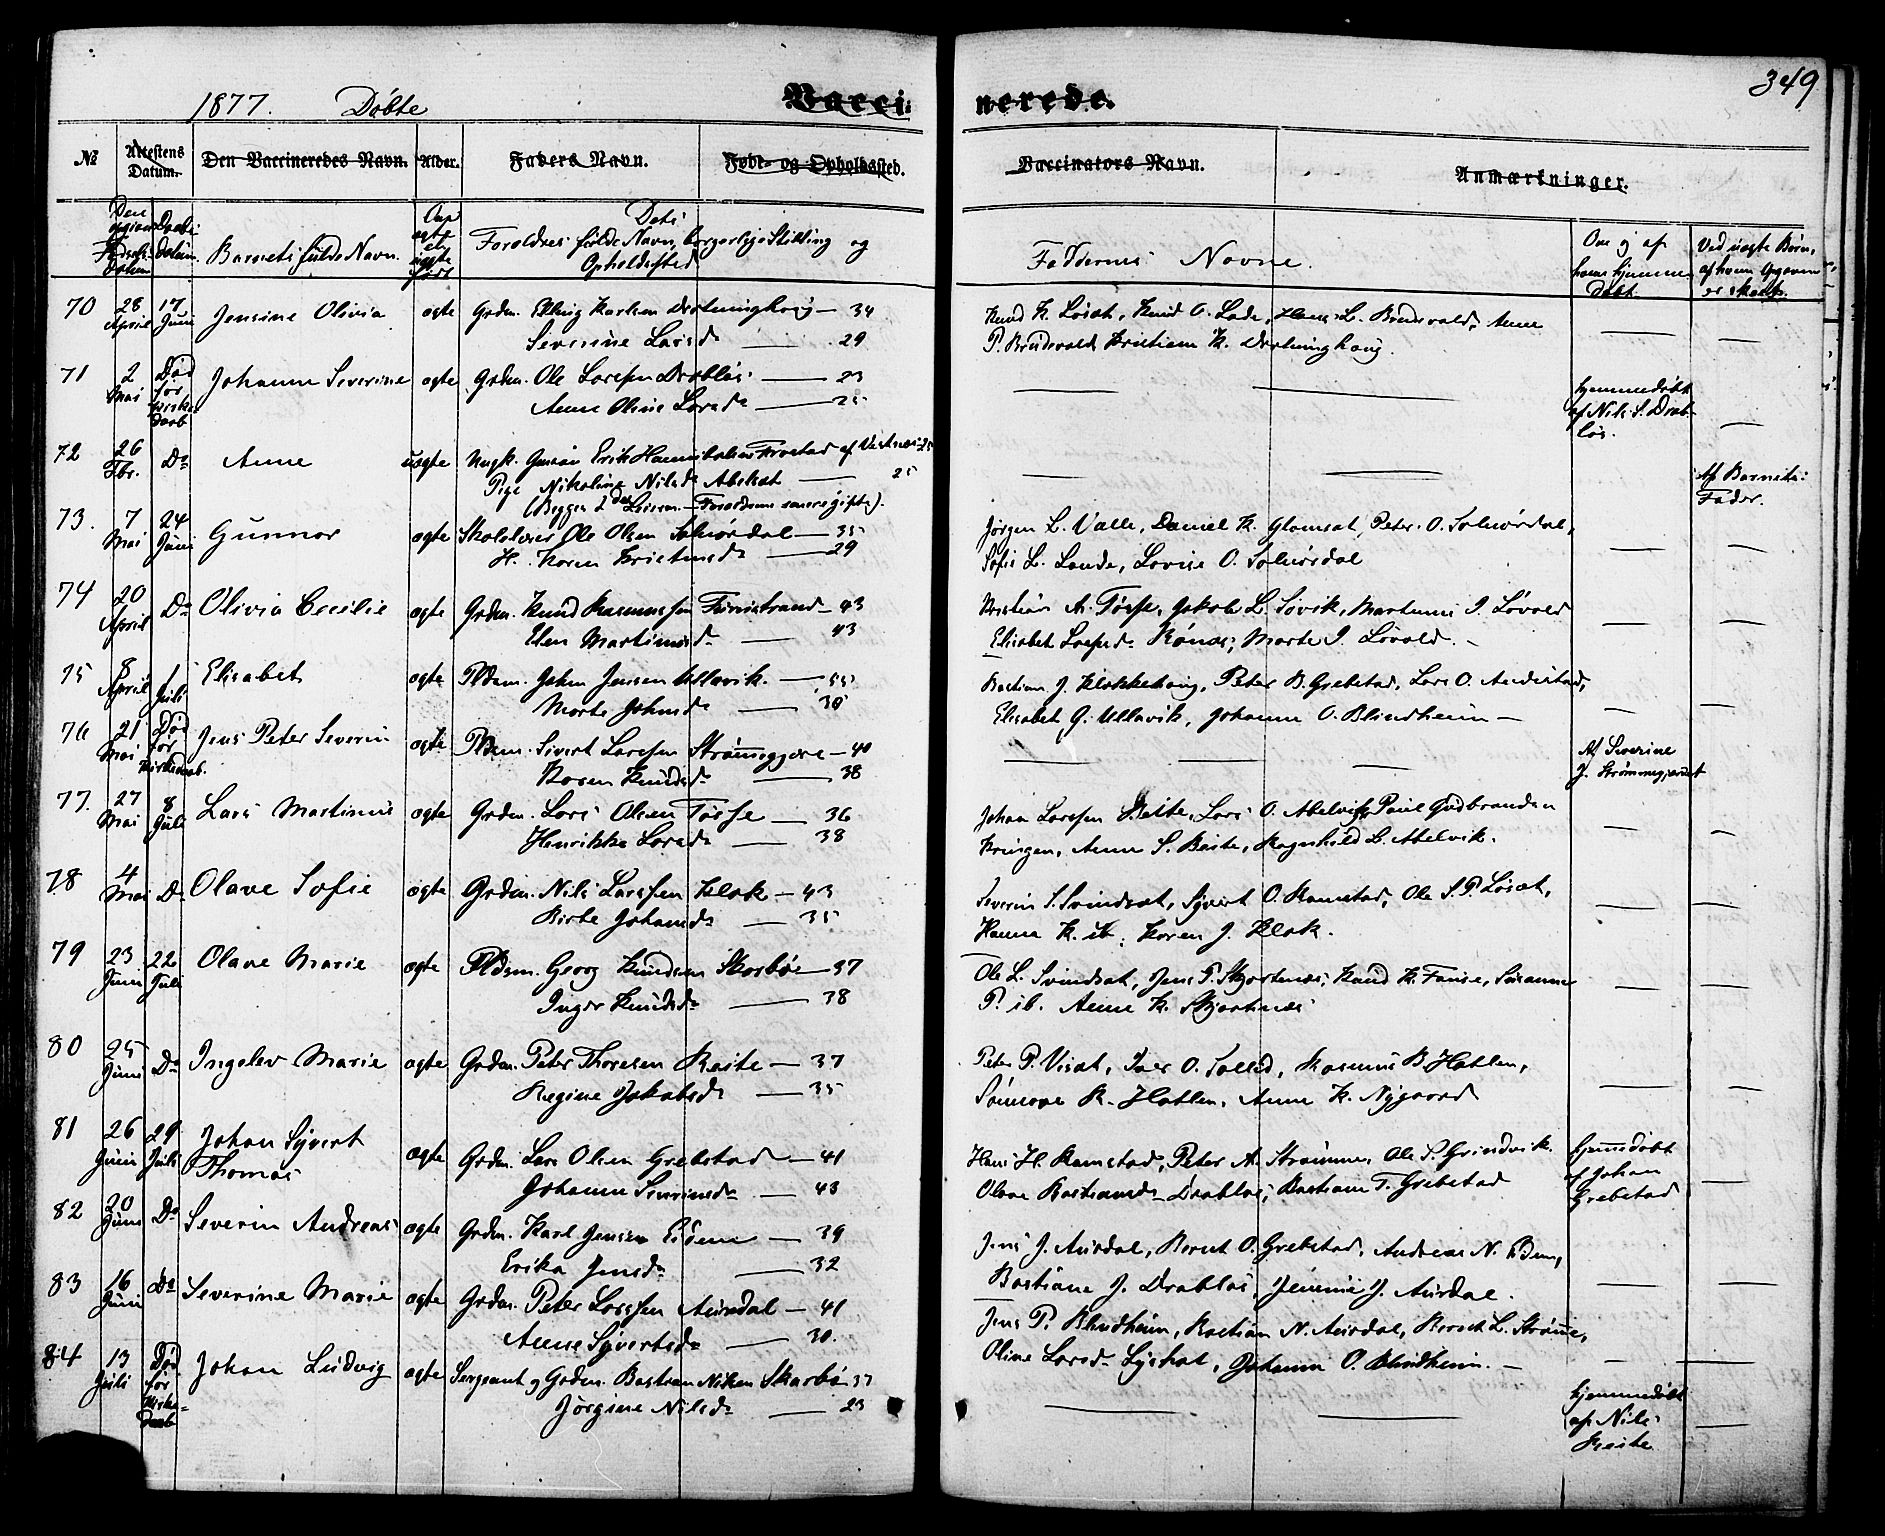 349
1877. Döbte
Vacci- nerede.
№ Attestens Datum. Den Vaccineredes Navn. Alder. Faders Navn. Føde- og Opholdssted. Vaccinators Navn. Anmærkninger.
Barnets fulde Navn
Forældres fulde Navn, borgerlige Stilling og
Opholdssted
Faddernes Navne.
Om og af
hvem hjemme
döbt.
Ved uægte Børn,
af hvem Opgaven
er skeet.
70 28 April 17 Juni Jensine Olivia ægte Grdm. Elling Karlsen — 34
Severine Larsd. — 29
Knud K. Løsæt, Knud O. Lade, Hans L. Brudevold, Anne
P. Brudevold, Kristian K.
71 2 Mai Død før Kirkedaab Johanne Severine ægte Grdm. Ole Larssen Drabløs — 23
Anne Oline Larsd. — 25
hjemmedöbt
af Nils S. Drab-
løs.
72 26 Fbr. Do Anne uægte Ungk. Erik af Vestnes 25
Pige Nikoline Nilsd. — 25
Af Barnets
Fader.
73. 7 Mai 24 Juni Gunnar ægte Skolelærer Ole Olsen Solnørdal — 35
H. Karen Kristensd. — 29
Jørgen L. Valle, Daniel K. Glomset, Peter O. Solnørdal,
Sofie L. Lande, Lovise O. Solnørdal
74 20 April Do Olivia Cecilie ægte Grdm. Knud Rasmussen — 43
Elen Martinusd. — 43
A. Tøsse, Jakob L. Sovik, Martinus I. Løvold
Elisabet Rønæs, Marte I. Løvold.
75 8 April 1 Juli Elisabet ægte Pldsm. Johan Jensen Ullavik. — 55
Marte Johnsd. — 38
Bastian J. Klokkehaug, Peter B. Grebstad, Lars O. Andestad,
Elisabet G. Ullavik, Johanne O. Blindheim —
76 21 Mai Død før Kirkedaab. Jens Peter Severin ægte Pldsm. Sivert Larssen Strømmegjære — 40
Karen Knudsd. — 38
Af Severine
J. Strømmegjærdet
77. 27 Mai 8 Juli Lars Martinus ægte Grdm. Lars Olsen Tøsse — 36
Henrikke Larsd. — 38
Johan Larssen Reite, Lars O. Abelvik, Paul Gudbrandsen
Kringen, Anne S. Baite, Ragnhild L. Abelvik.
78 4 Mai Do Olave Sofie ægte Grdm. Nils Larssen Klok — 43
Birte Johansd. — 35
Severin S. Svindset, Syvert O. Ramstad, Ole S. P. Løsæt,
Hanna K. ib. Karen J. Klok.
79 23 Juni 22 Juli Olave Marie ægte Pldsm. Georg Knudsen Skarbø — 37
Inger Knudsd. — 38
Ole L. Svindset, Jens P. Skjortnæs, Knud K. Susanne
P. ib. Anne K. Skjortnæs
80 25 Juni Do Ingelev Marie ægte Grdm. Peter Thoresen Reite — 37
Regine Jakobsd. — 35
Peter P. Viset, Iver O. Rasmus B. Hatlen,
R. Hatlen, Anne K. Nygaard
81 26 Juni 29 Juli Johan Syvert
Thomas ægte Grdm. Lars Olsen Grebstad — 41
Johanne Severinsd. — 43
Hans H. Ramstad, Peter A. Strømme, Ole S. Grindvik.
Olave Bastiansd. Drabløs, Bastian T. Grebstad
hjemmedöbt
af Johan
Grebstad
82 20 Juni Do Severin Andreas ægte Grdm. Karl Jensen — 39
Erika Jensd. — 32
Jens J. Aursdal, Bernt O. Grebstad, Andreas N.
Bastiane J. Drabløs, J. Aursdal.
83 16 Juni Do Severine Marie ægte Grdm. Peter Larssen Aursdal — 41
Anne Syvertsd. — 30.
Jens P. Blindheim, Bastian N. Aursdal, Bernt L. Strømme,
Oline Larsd. Johanne O. Blindheim. —
84 13 Juli Død før Kirke-daab Johan Ludvig ægte Sergeant og Grdm. Bastian Nilsen Skarbø 37
Jørgine Nilsd. — 23
hjemmedöbt
af Nils
Reite